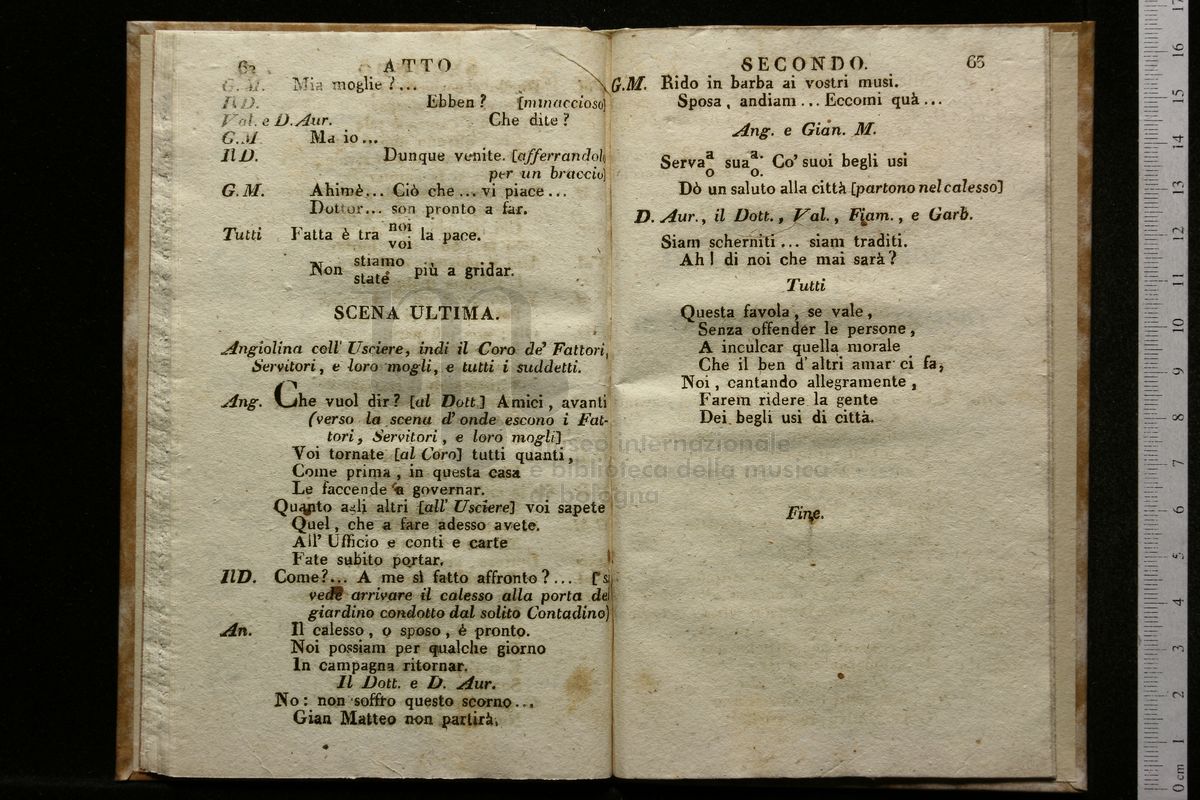 62 ATTO
G. M. Mia moglie?...
Il D. Ebben? [minaccioso]
Val. e D. Aur. Che dite?
G. M. Ma io...
Il D. Dunque venite. [afferrandol
per un braccio]
G. M. Ahimè... Ciò che... vi piace...
Dottor... son pronto a far.
Tutti Fatta è tra noi
voi la pace.
Non stiamo
state più a gridar.
SCENA ULTIMA.
Angiolina coll' Usciere, indi il Coro de' Fattori,
Servitori, e loro mogli, e tutti i suddetti.
Ang. Che vuol dir? [al Dott.] Amici, avanti
(verso la scena d'onde escono i Fat-
tori, Servitori, e loro mogli]
Voi tornate [al Coro] tutti quanti,
Come prima, in questa casa
Le faccende a governar.
Quanto agli altri [all' Usciere] voi sapete
Quel, che a fare adesso avete.
All' Ufficio e conti e carte
Fate subito portar.
Il D. Come?... A me sì fatto affronto?... [si
vede arrivare il calesso alla porta del
giardino condotto dal solito Contadino)
An. Il calesso, o sposo, è pronto.
Noi possiam per qualche giorno
In campagna ritornar.
Il Dott. e D. Aur.
No: non soffro questo scorno...
Gian Matteo non partirà.
SECONDO. 63
G.M. Rido in barba ai vostri musi.
Sposa, andiam... Eccomi quà...
Ang. e Gian. M.
Serva sua. Co' suoi begli usi
o o.
Dò un saluto alla città [partono nel calesso]
D. Aur., il Dott., Val., Fiam., e Garb.
Siam scherniti... siam traditi.
Ah! di noi che mai sarà?
Tutti
Questa favola, se vale,
Senza offender le persone,
A inculcar quella morale
Che il ben d'altri amar ci fa;
Noi, cantando allegramente,
Farem ridere la gente
Dei begli usi di città.
Fine.
museo internazionale
e biblioteca della musica
di bologna
0 cm 1 2 3 4 5 6 7 8 9 10 11 12 13 14 15 16 17